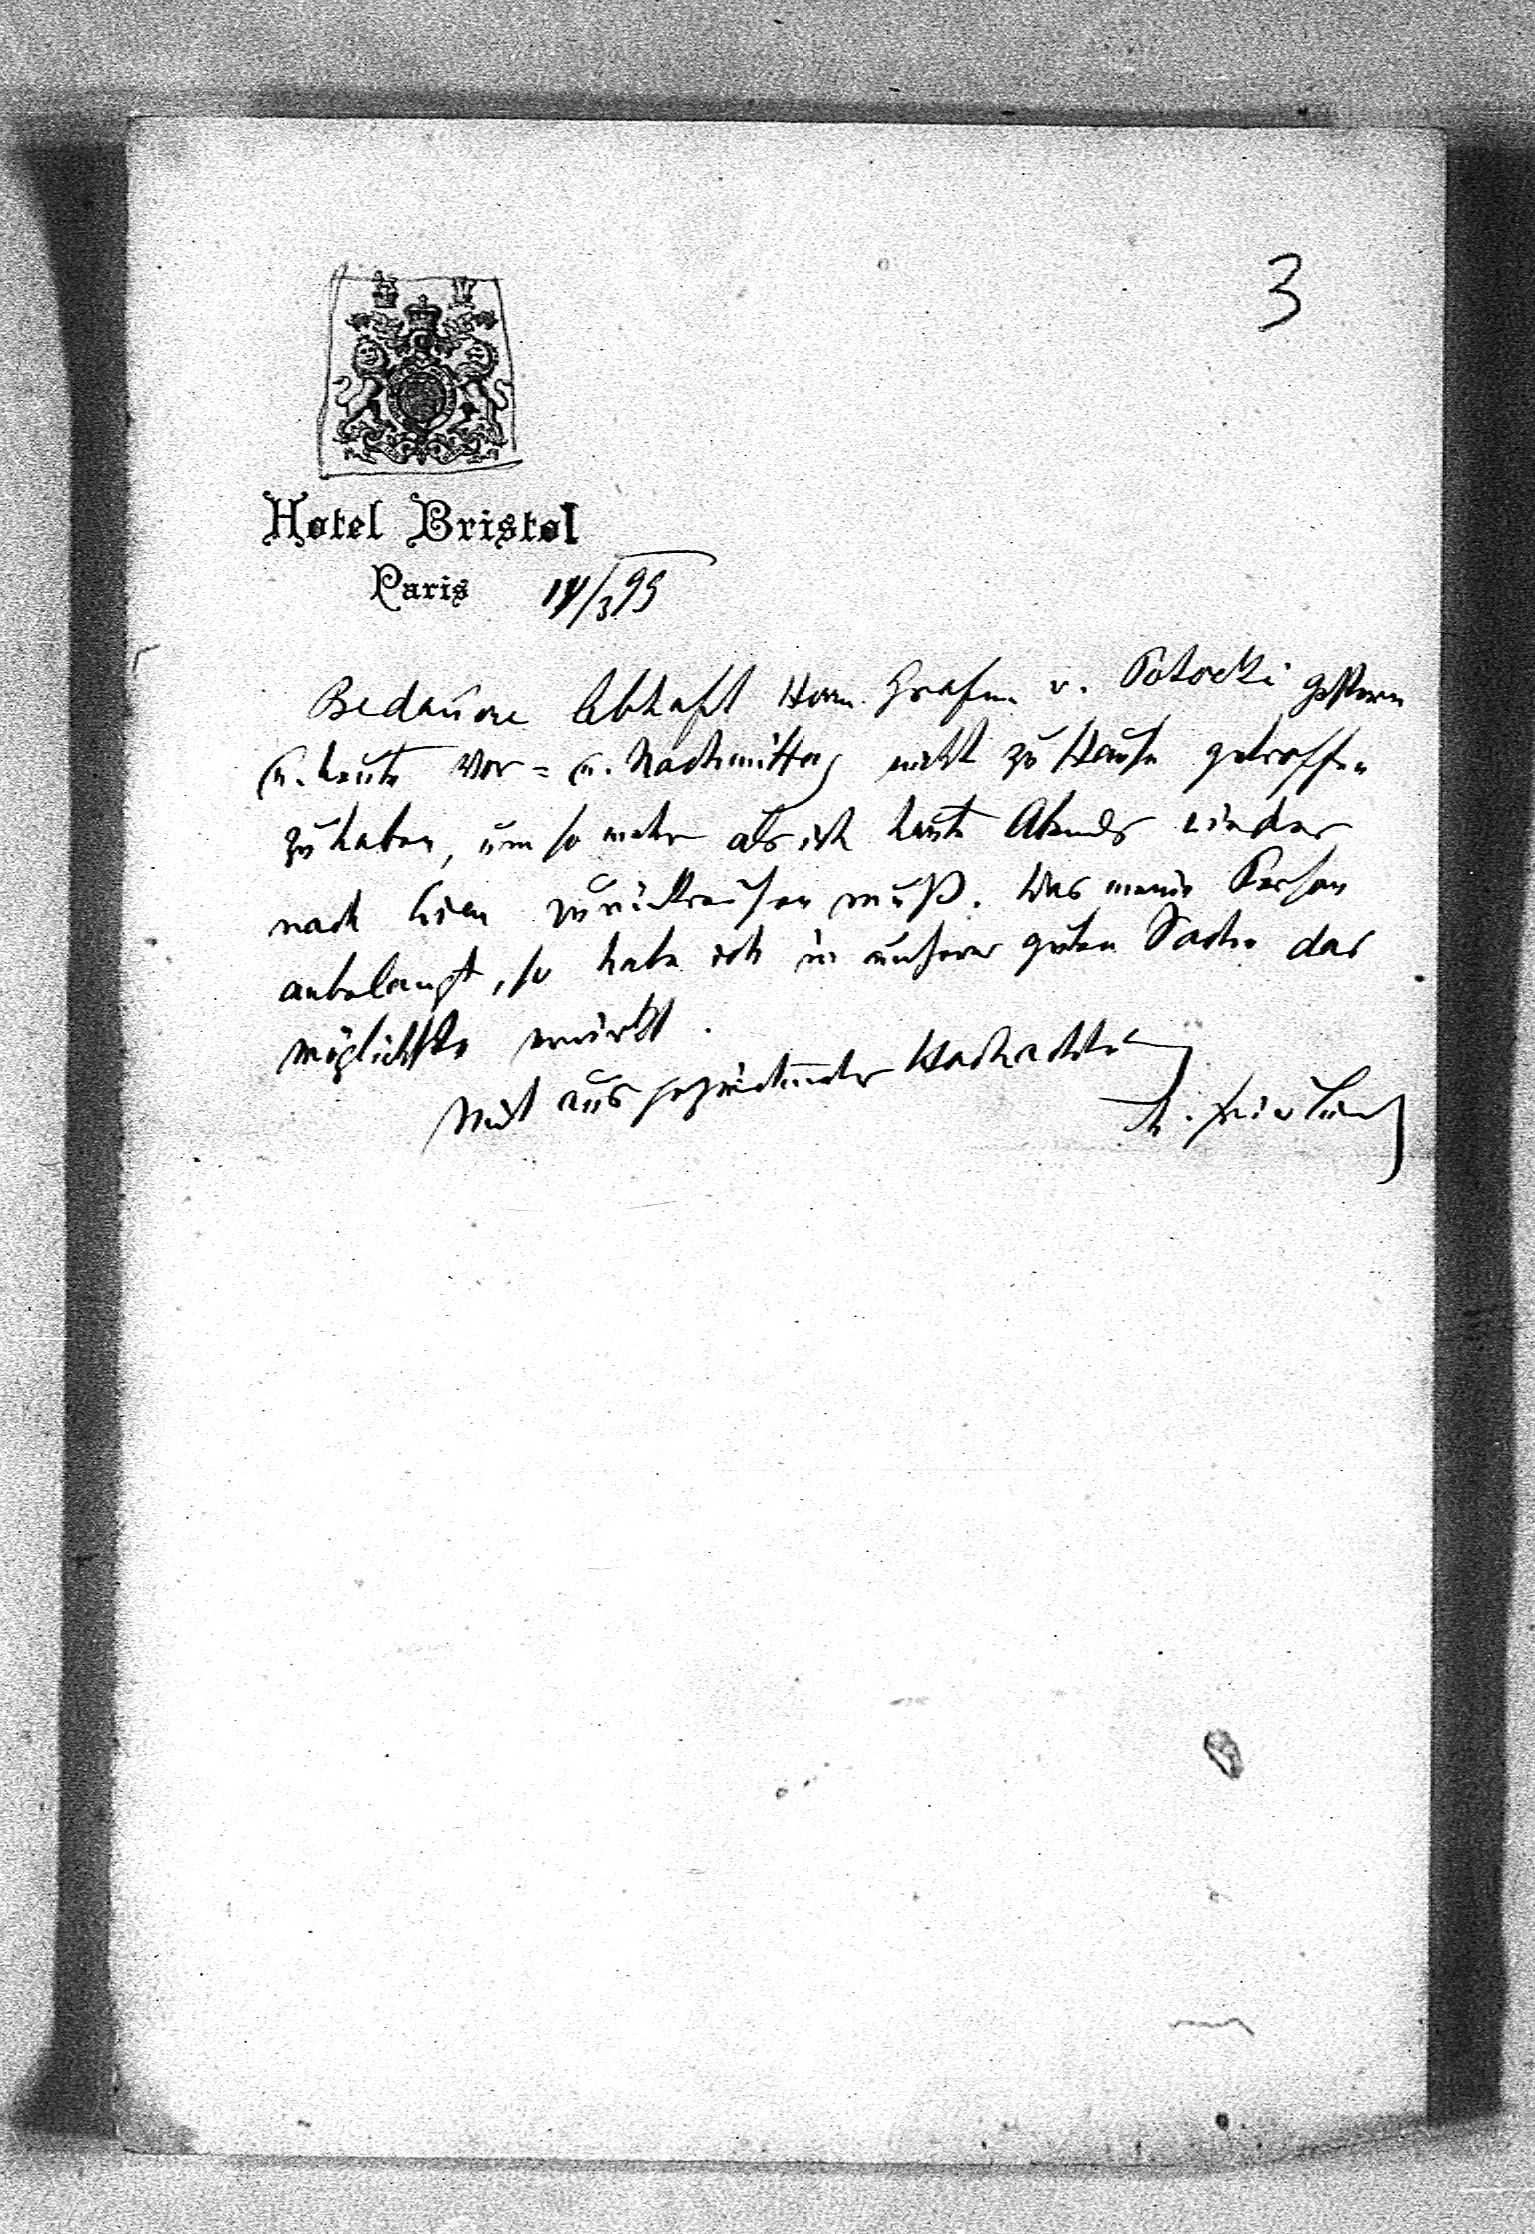 3
Hotel Bristol
Paris 14/3 95
Bedaure lebhaft Herrn Grafen v. Potocki gestern
u. heute Vor= u. Nachmittag nicht zu Hause getroffen
zu haben, um so mehr als ich heute Abends wieder
nach Wien zurückreisen muß. Was meine Person
anbelangt, so habe ich in unserer guten Sache das
möglichste erwirkt.
Mit ausgezeichneter Hochachtung